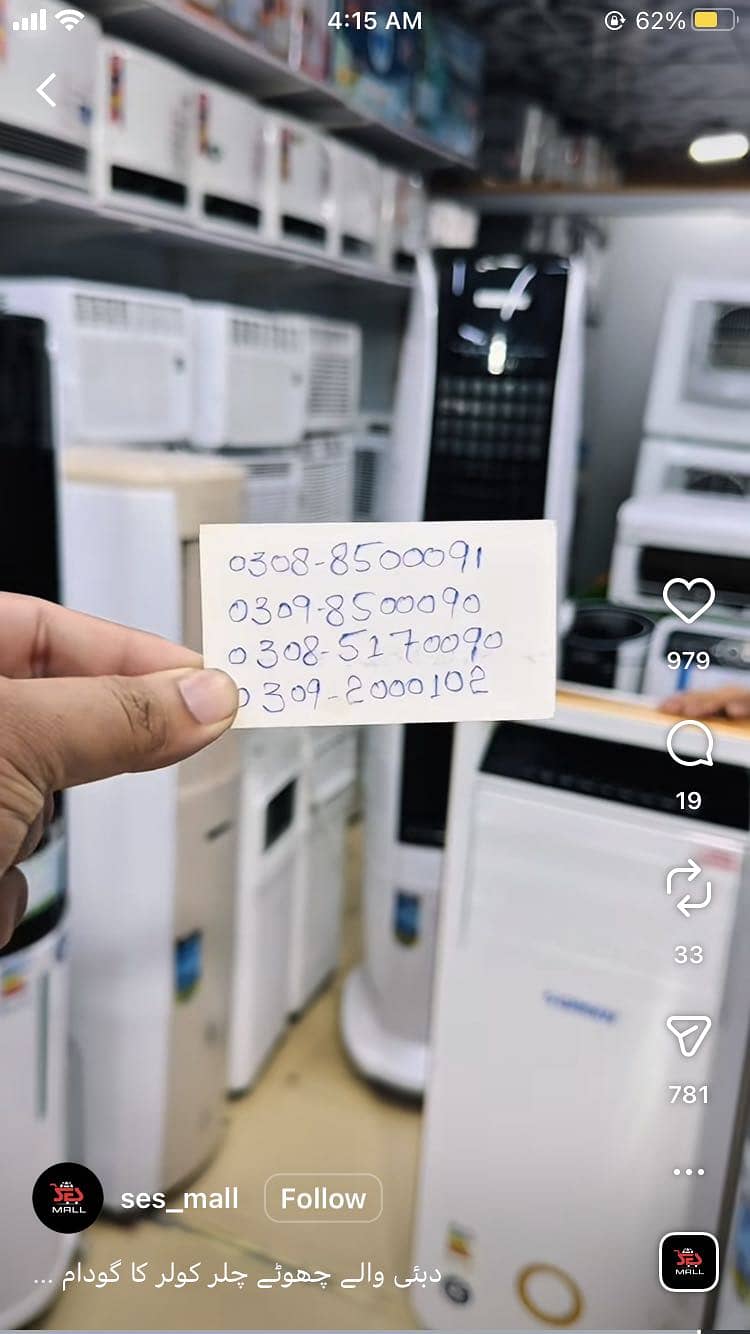 4:15 AM
62%
0308-8500091
0309-8500090
0308-5170090
0309-2000102
979
19
33
781
SES
MALL
ses_mall
Follow
SES
MALL
دبئی والے چھوٹے چلر کولر کا گودام ...